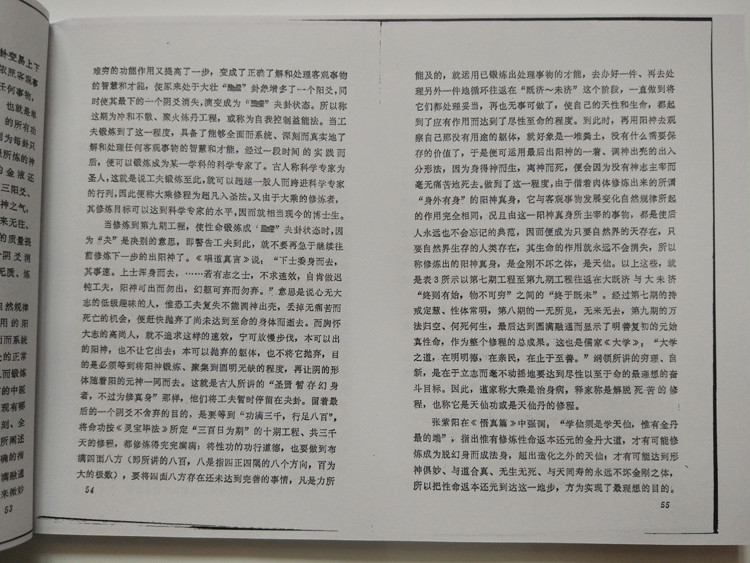 卦变易上下
依照客观事
任何事物，
也就是单
的所有功
因为每卦只
所拣的神
白金液还
三阳爻、
神之气，
来无往、
的质量提
个阴爻消
无质、炼
自然规律
用的阳
而系统
之正常
人而锻炼
的中医
现有哪
刻、全
所阐述
确的指
满融通
来微妙
53
难穷的功能作用又提高了一步，变成了正确了解和处理客观事物
的智慧和才能，使原来处于大壮“䷡”卦叁增多了一个阳爻，同
时使其最下的一个阴爻消失，演变成为“䷪”夬卦状态。所以称
这期为冲和不散、聚火炼丹工程，或称为自我控制益能法。当工
夫锻炼到了这一程度，具备了能够全面而系统、深刻而真实地了
解和处理任何客观事物的智慧和才能，经过一段时间的实践而
后，便可以锻炼成为某一学科的科学专家了。古人称科学专家为
圣人，这就是说工夫锻炼至此，就可以超越一般人而跨进科学专家
的行列，因此便称大乘修程为超凡入圣法。又由于大乘的修炼者，
其修炼目标可以达到科学专家的水平，因而就相当现今的博士生。
当修炼到第九期工程，使性命锻炼成“䷪”夬卦状态时，因
为“夬”是决别的意思，即警告工夫到此，就不要再急于继续往
前修炼下一步的出阳神了。《唱道真言》说：“下士委身而去，
其事速。上士浑身而去，……若有志之士，不求速效，自肯做迟
钝工夫，阳神可出而勿出，幻躯可弃而勿弃。”意思是说心无大
志的低级趣味的人，惟恐工夫复失不能调神出壳，丢掉无痛苦而
死亡的机会，便赶快抛弃了尚未达到至命的身体而逝去。而胸怀
大志的高尚人，就不追求这样的速效，宁可放慢步伐，本可以出
的阳神，也不让它出去；本可以抛弃的躯体，也不将它抛弃，目
的是必须等到将阳神锻炼、聚集到圆明无缺的程度，再让阴的形
体随着阳的元神一同而去。这就是古人所讲的“圣贤暂存幻身
者，不过为修真身”那样，他们将工夫暂时停留在夬卦。留着最
后的一个阴爻不舍弃的目的，是要等到“功满三千，行足八百”，
将命功按《灵宝毕法》所定“三百日为期”的十期工程、共三千
天的修程，都修炼得完完满满；将性功的功行道德，也要做到布
满四面八方（即所讲的八百，八是指四正四隅的八个方向，百为
大的极数），要将四面八方存在还未达到完善的事情，凡是力所
54
能及的，就运用已锻炼出处理事物的才能，去办好一件、再去处
理另外一件地循环往返在“既济～未济”这个阶段，一直做到将
它们都处理妥当，再也无事可做了，使自己的天性和生命，都起
到了应有作用而达到了尽性至命的程度。到此时，再用阳神去观
察自己那没有用途的躯体，就好象是一堆粪土，没有什么需要保
存的价值了，于是便可运用最后出阳神的一着、调神出壳的出入
分形法，因为身得神而生，离神而死，便会因为没有神志主宰而
毫无痛苦地死去。做到了这一程度，由于借着肉体修炼出来的所谓
“身外有身”的阳神真身，它与客观事物发展变化自然规律所起
的作用完全相同，况且由这一阳神真身所主宰的事物，都是使后
人永远也不会忘记的典范，因而便成为只要自然界的天存在，只
要自然界生存的人类存在，其生命的作用就永远不会消失，所以
称修炼出的阳神真身，是金刚不坏之体，是天仙。以上这些，就
是表3所示以第七期工程至第九期工程往返在大既济与大未济
“终则有始，物不可穷”之间的“终于既未”。经过第七期的持
戒定慧，性体常明，第八期的一无所见，无来无去，第九期的万
法归空、何死何生，最后达到圆满融通而显示了明善复初的元始
真性命，作为整个修程的总成果。这也是儒家《大学》：“大学
之道，在明明德，在亲民，在止于至善。”纲领所讲的穷理、自
新，是在于立志而毫不动摇地要达到尽性以至于命的最理想的奋
斗目标。因此，道家称大乘是治身病，释家称是解脱死苦的修
程，也称它是天仙功或是天仙丹的修程。
张紫阳在《悟真篇》中强调：“学仙须是学天仙，惟有金丹
最的端”，指出惟有修炼性命返本还元的金丹大道，才有可能修
炼成为脱幻身而成法身，超出造化之外的天仙；才有可能达到形
神俱妙、与道合真、无生无死、与天同寿的永远不坏金刚之体，
所以把性命返本还元到达这一地步，方为实现了最理想的目的。
55